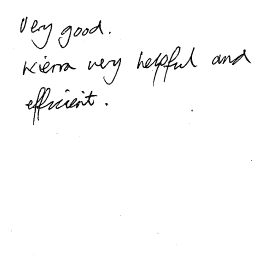 Very good.
Kierra very helpful and
efficient.